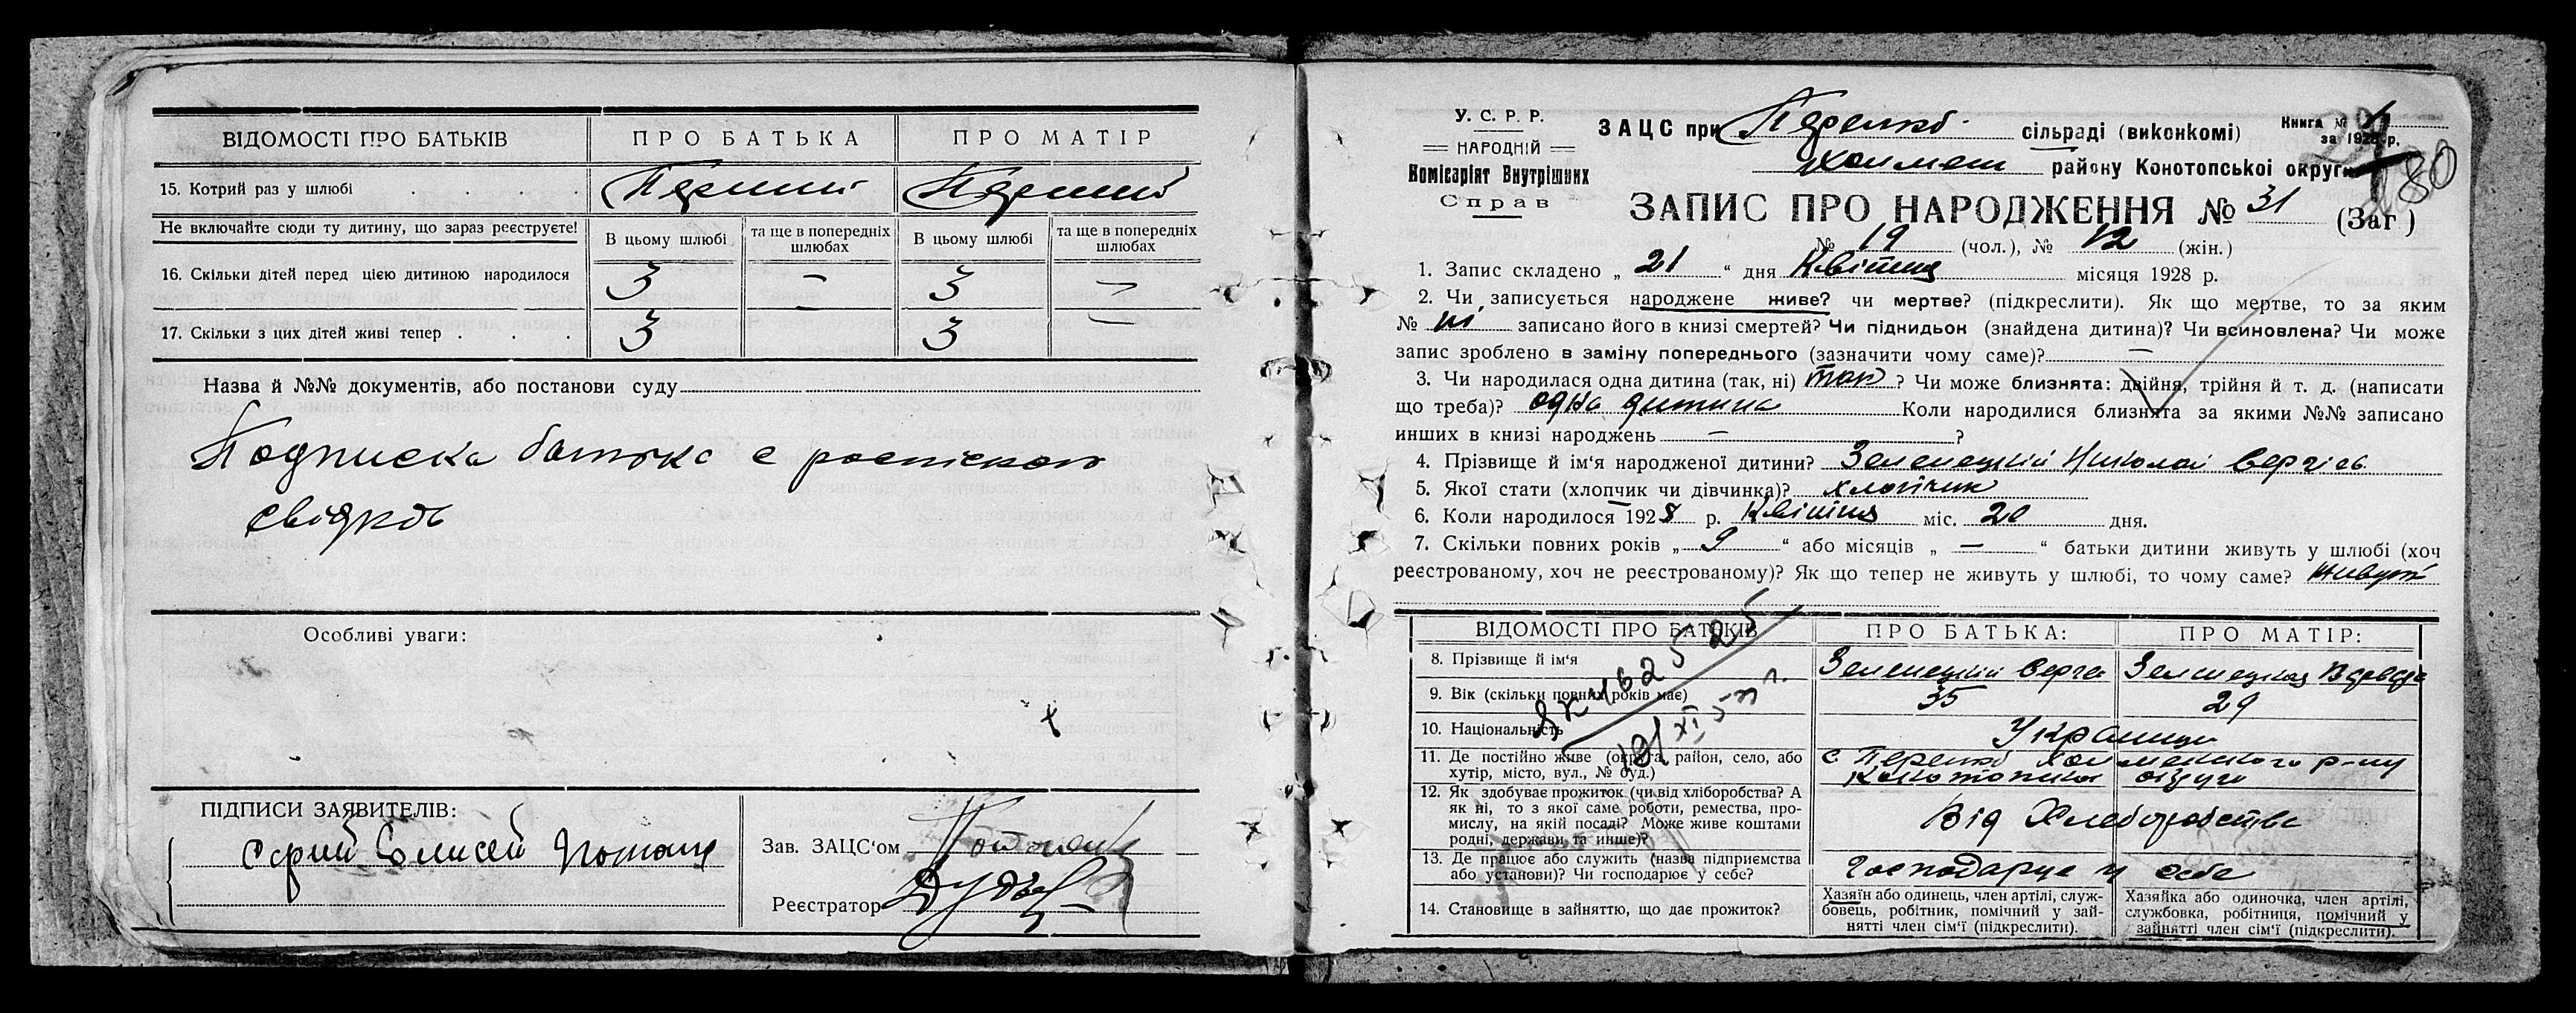 ВІДОМОСТІ ПРО БАТЬКІВ
ПРО БАТЬКА
ПРО МАТІР
15. Котрий раз у шлюбі
Перший
Перший
Не включайте сюди ту дитину, що зараз реєструєте!
В цьому шлюбі
та ще в попередніх шлюбах
В цьому шлюбі
та ще в попередніх шлюбах
16. Скільки дітей перед цією дитиною народилося
3 — 3 —
17. Скільки з цих дітей живі тепер
3 — 3 —
Назва й №№ документів, або постанови суду
Подписка батька с
свідков
Особливі уваги:
ПІДПИСИ ЗАЯВИТЕЛІВ:
Зав. ЗАЦС'ом
Реєстратор
У. С. Р. Р.
НАРОДНІЙ
Комісаріят Внутрішніх
Справ
ЗАЦС при сільраді (виконкомі)
Книга №
за 1928 р.
району Конотопської округи
180
ЗАПИС ПРО НАРОДЖЕННЯ № 31 (Заг)
№ 19 (чол.), № 12 (жін.)
1. Запис складено „ 21 “ дня Квітня місяця 1928 р.
2. Чи записується народжене живе? чи мертве? (підкреслити). Як що мертве, то за яким
№ ні записано його в книзі смертей? Чи підкидьок (знайдена дитина)? Чи всиновлена? Чи може
запис зроблено в заміну попереднього (зазначити чому саме)? —
3. Чи народилася одна дитина (так, ні) так ? Чи може близнята: двійня, трійня й т. д. (написати
що треба)? одна дитина Коли народилися близнята за якими №№ записано
инших в книзі народжень — ?
4. Прізвище й ім'я народженої дитини? Зеленецкий Николай Сергіев
5. Якої стати (хлопчик чи дівчинка)? хлопчик
6. Коли народилося 1928 р. Квітня міс. 20 дня.
7. Скільки повних років „ 9 “ або місяців „ — “ батьки дитини живуть у шлюбі (хоч
реєстрованому, хоч не реєстрованому)? Як що тепер не живуть у шлюбі, то чому саме? живуть
ВІДОМОСТІ ПРО БАТЬКІВ
ПРО БАТЬКА:
ПРО МАТІР:
8. Прізвище й ім'я
Зеленецкий
Зеленецкая
9. Вік (скільки повних років має)
35
29
10. Національність
Украинци
11. Де постійно живе (округа, район, село, або
хутір, місто, вул., № буд.)
12. Як здобуває прожиток (чи від хліборобства? А
як ні, то з якої саме роботи, ремества, про-
мислу, на якій посаді? Може живе коштами
родні, держави та инше)?
Від Хлеборобства
13. Де працює або служить (назва підприємства
або установи)? Чи господарює у себе?
Господарює у себе
14. Становище в зайняттю, що дає прожиток?
Хазяїн або одинець, член артілі, служ-
бовець, робітник, помічний у зай-
нятті член сім'ї (підкреслити).
Хазяйка або одиночка, член артілі,
службовка, робітниця, помічний у
зайнятті член сім'ї (підкреслити).